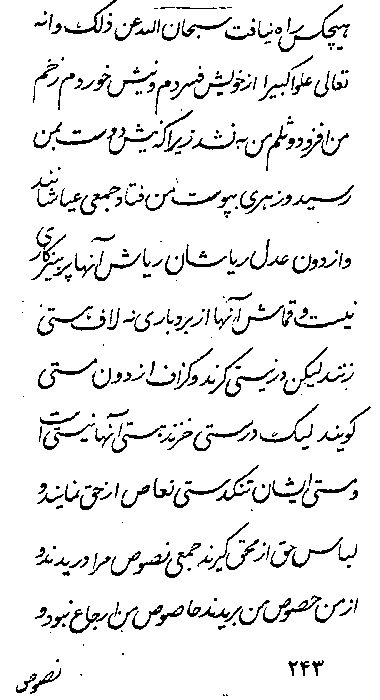 هیچکس راه نیافت سبحان الله عن ذلک وانه
تعالی علوا کبیرا از خویش فسردم و نیش خوردم زخم
من افزود و ثلم من به نشد زیرا که نیش دوست بمن
رسید و زهری بپوست من فتاد جمعی عباشانند
و از دون عدل ریاشان ریاش آنها پرهیزکاری
نیست و قماش آنها از بردباری نه لاف هستی
زنند لیکن در نیستی گرند و گزاف از دون مستی
گویند لیک در سستی خزند هستی آنها نیستی است
و مستی ایشان تنکدستی تعاص از حق نمایند و
لباس حق از محق گیرند جمعی نصوص مرا دریدند و
از من خصوص من بریدند خاصوص من ارجاع نبود و
۲۴۳
نصوص